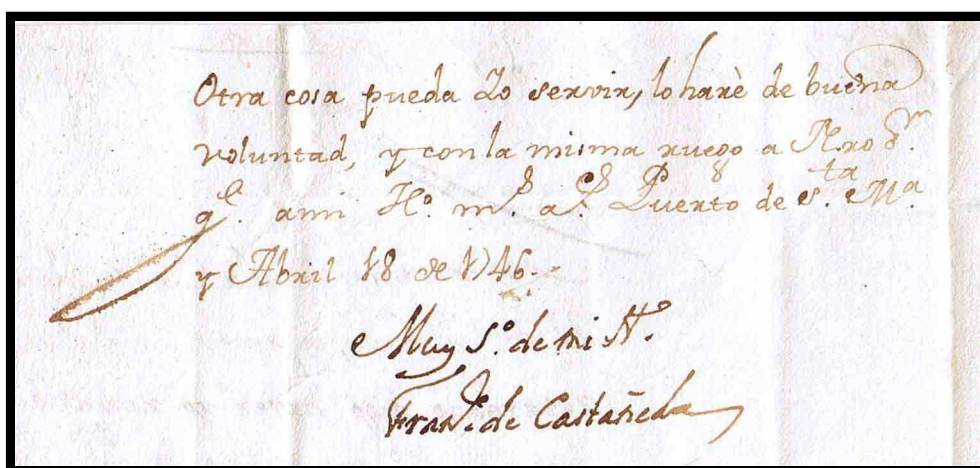 Otra cosa pueda Yo servir, lo harè de buena
voluntad, y con la misma ruego a Nro Sr.
gue ami Ho. ms. as. Puerto de Sta. Ma.
y Abril 18 de 1746.
Muy So. de mi Ho.
Franco. de Castañeda